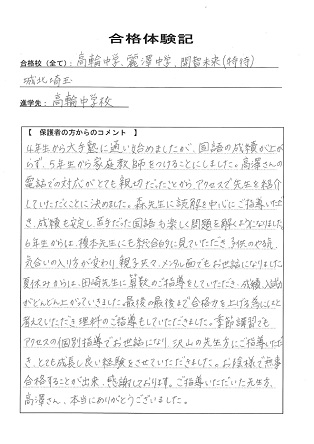 合格体験記
合格校(全て): 高輪中学、麗澤中学、開智未来(特待)
城北埼玉
進学先: 高輪中学校
【 保護者の方からのコメント 】
4年生から大手塾に通い始めましたが、国語の成績が上が
らず、5年生から家庭教師をつけることにしました。高澤さんの
電話での対応がとても親切だったことからアクセスで先生を紹介
していただくことに決めました。森先生に読解を中心にご指導いただ
き、成績も安定し、苦手だった国語も楽しく問題を解くようになりました。
6年生からは、榎本先生にも総合的に見ていただき、子供のやる気、
気合いの入り方が変わり、親子共々、メンタル面でもお世話になりました。
夏休みからは、田崎先生に算数のご指導をしていただき、成績
がどんどん上がっていきました。最後の最後まで合格力を上げる為に
考えていただき理科のご指導もしていただきました。季節講習でも
アクセスの個別指導でお世話になり、沢山の先生方にご指導いただ
き、とても成長し良い経験をさせていただきました。お陰様で無事
合格することが出来、感謝しております。ご指導いただいた先生方、
高澤さん、本当にありがとうございました。